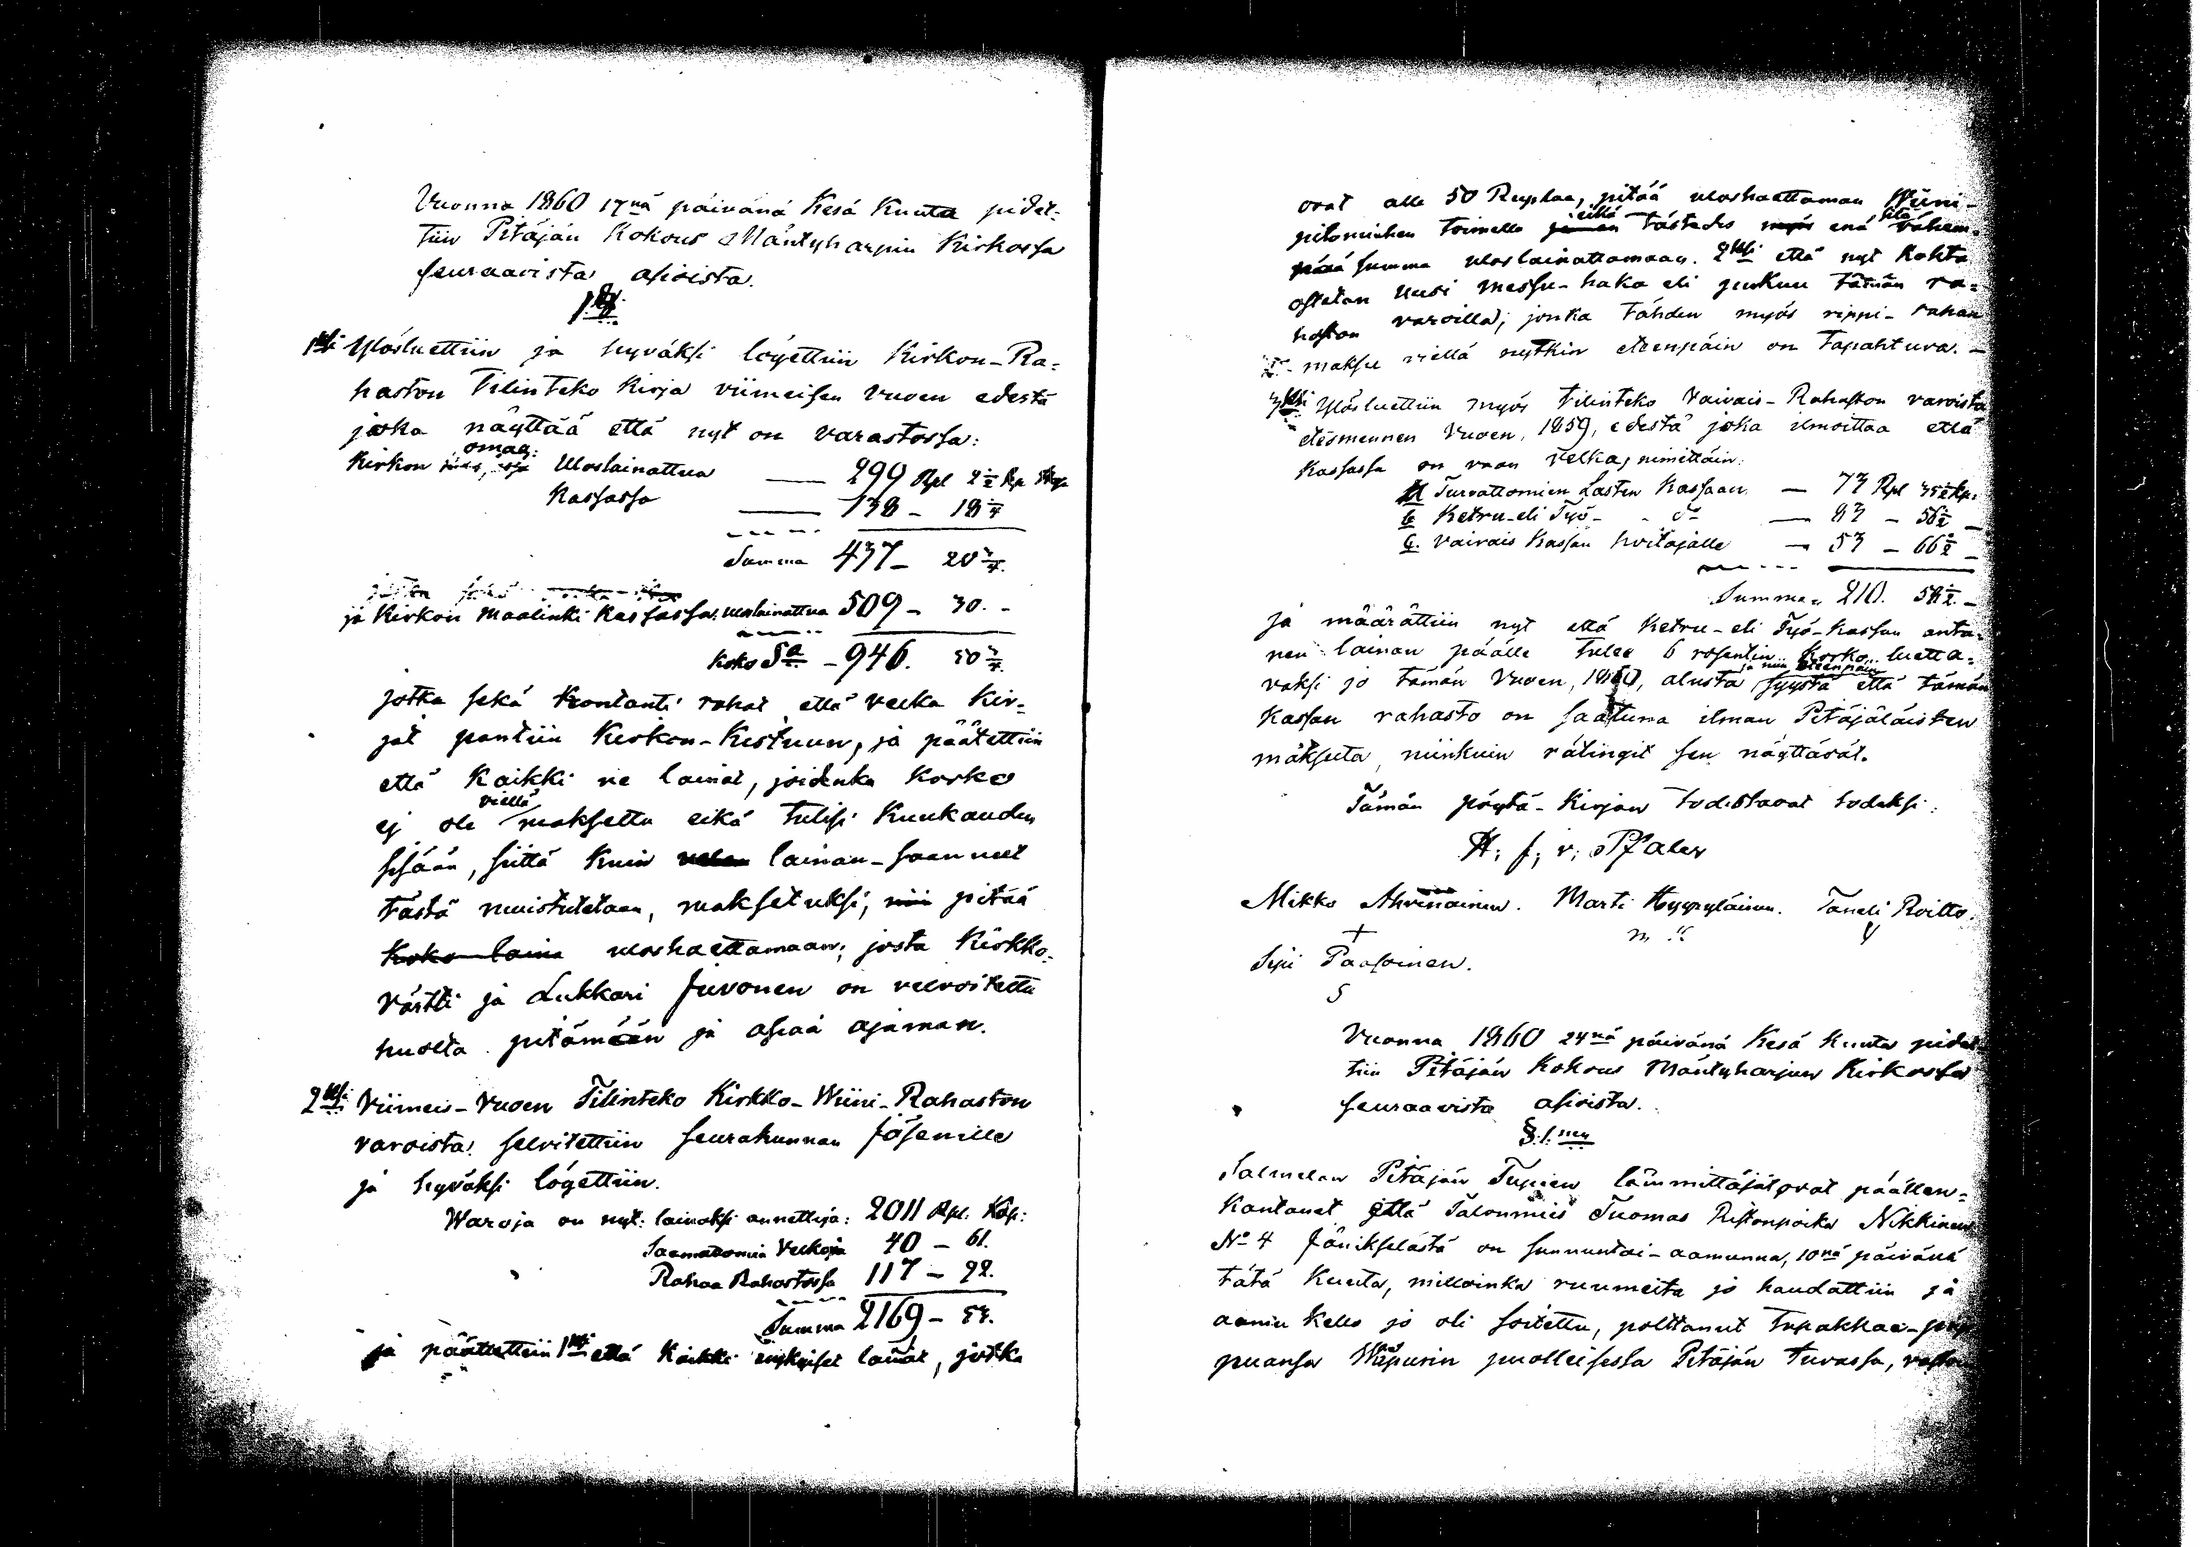 Vuonna 1860 17nä päivänä Kesä Kuuta pidet-
tiin Pitäjän Kokous Mäntyharjun Kirkossa
seuraavista asioista.
1ksi Ylösluettiin ja hyväksi löyettiin Kirkon-Ra-
haston Tilinteko Kirja viimeisen vuoen edestä
joka näyttää että nyt on varastossa:
Kirkon omaa: Uloslainattua — 299 Rpl 2 1/2 Kp
Kassassa — 138 - 18 1/4
Summa 437 - 20 3/4
ja Kirkon Maalinki Kassassa uloslainattua 509 - 30. -
Koko Sa - 946. 50 3/4
jotka sekä kontanti rahat että velka Kir-
jat pantiin Kirkon-Kistuun, ja päätettiin
että Kaikki ne lainat, joidenka Korko
ej ole viellä maksettu eikä tulisi Kuukauden
sisään, siittä kuin lainan-saanneet
tästä muistutetaan, maksetuksi, pitää
Koko laina uloshaettamaan; josta Kirkko-
värtti ja Lukkari Juvonen on velvoitettu
huolta pitämään ja asiaa ajaman.
2ksi Viimeis-Vuoen Tilinteko Kirkko-Wiini-Rahaston
varoista selvitettiin seurakunnan Jäsenille
ja hyväksi löyettiin.
Waroja on nyt: lainaksi annettuja: 2011 Rpl. Kop:
Saamattomia Velkoja 40 - 61.
Rahaa Rahastossa 117 - 92.
Summa 2169 - 53.
ja päätettiin 1ksi että Kaikki nykyiset lainat, jotka
ovat alle 50 Ruplaa, pitää uloshaettaman Wiini-
pitomiehen toimella eikä tästedes enä sitä vähem-
pää summa uloslainattamaan. 2ksi että nyt Kohta
ostetan uusi messu-haka eli puku tämän ra-
haston varoilla; jonka tähden myös rippi-rahan
maksu viellä nytkin eteenpäin on tapahtuva. -
3ksi Ylösluettiin myös tilinteko Vaivais-Rahaston varoista
edesmennen Vuoen, 1859, edestä joka ilmoittaa että
Kassassa on vaan velkaa, nimittäin:
a Turvattomien Lasten Kassaan — 73 Rpl 35 1/2 Kp:
b Ketru-eli Työ- do — 83 - 56 1/2 -
c. Vaivais Kassan hoitajalle — 53 - 66 1/2 -
Summa 210. 58 1/2 -
ja määrättiin nyt että Ketru-eli Työ-Kassan anta-
nen lainan päälle tulee 6 rosentin Korko luetta-
vaksi jo tämän Vuoen, 1860, alusta ja niin eteenpäin syystä että tämän
Kassan rahasto on saatuna ilman Pitäjäläisten
maksuta, niinkuin rätingit sen näyttävät.
Tämän pöytä-Kirjan todistavat todeksi:
H. f. v. Pfaler
Mikko Ahvenainen. Marti Hyyryläinen. Taneli Roitto.
Sipi Paasoinen.
S
Vuonna 1860 24nä päivänä Kesä Kuuta pidet
tiin Pitäjän Kokous Mäntyharjun Kirkossa
seuraavista asioista.
§ 1.nen
Salmelan Pitäjän Tupien lämmittäjät ovat päällen-
Kantanet että Talonmies Tuomas Ristonpoika Nikkinen
No 4 Jänikselästä on sunnuntai-aamunna, 10nä päivänä
tätä Kuuta, milloinka ruumeita jo haudattiin ja
aamu Kello jo oli soitettu, polttanut tupakkaa-pii
puansa Wiipurin puolleisessa Pitäjän tuvassa,